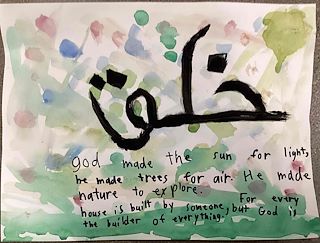 خلق
god made the sun for light,
he made trees for air. He made
nature to explore. For every
house is built by someone, but God is
the builder of everything.